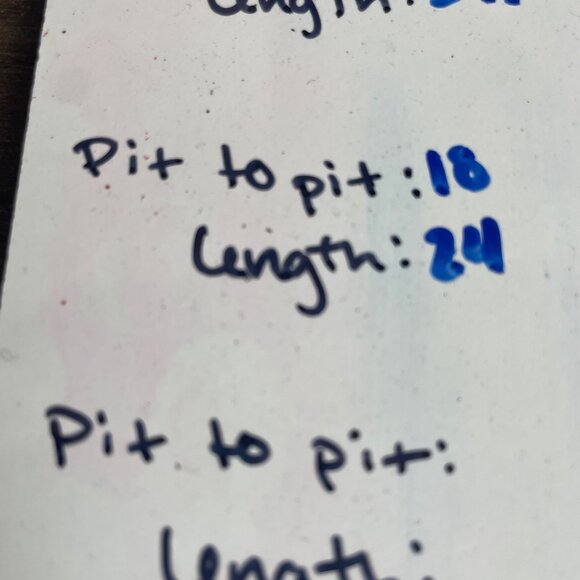 Length:
Pit to pit: 18
Length: 24
Pit to pit:
Length: